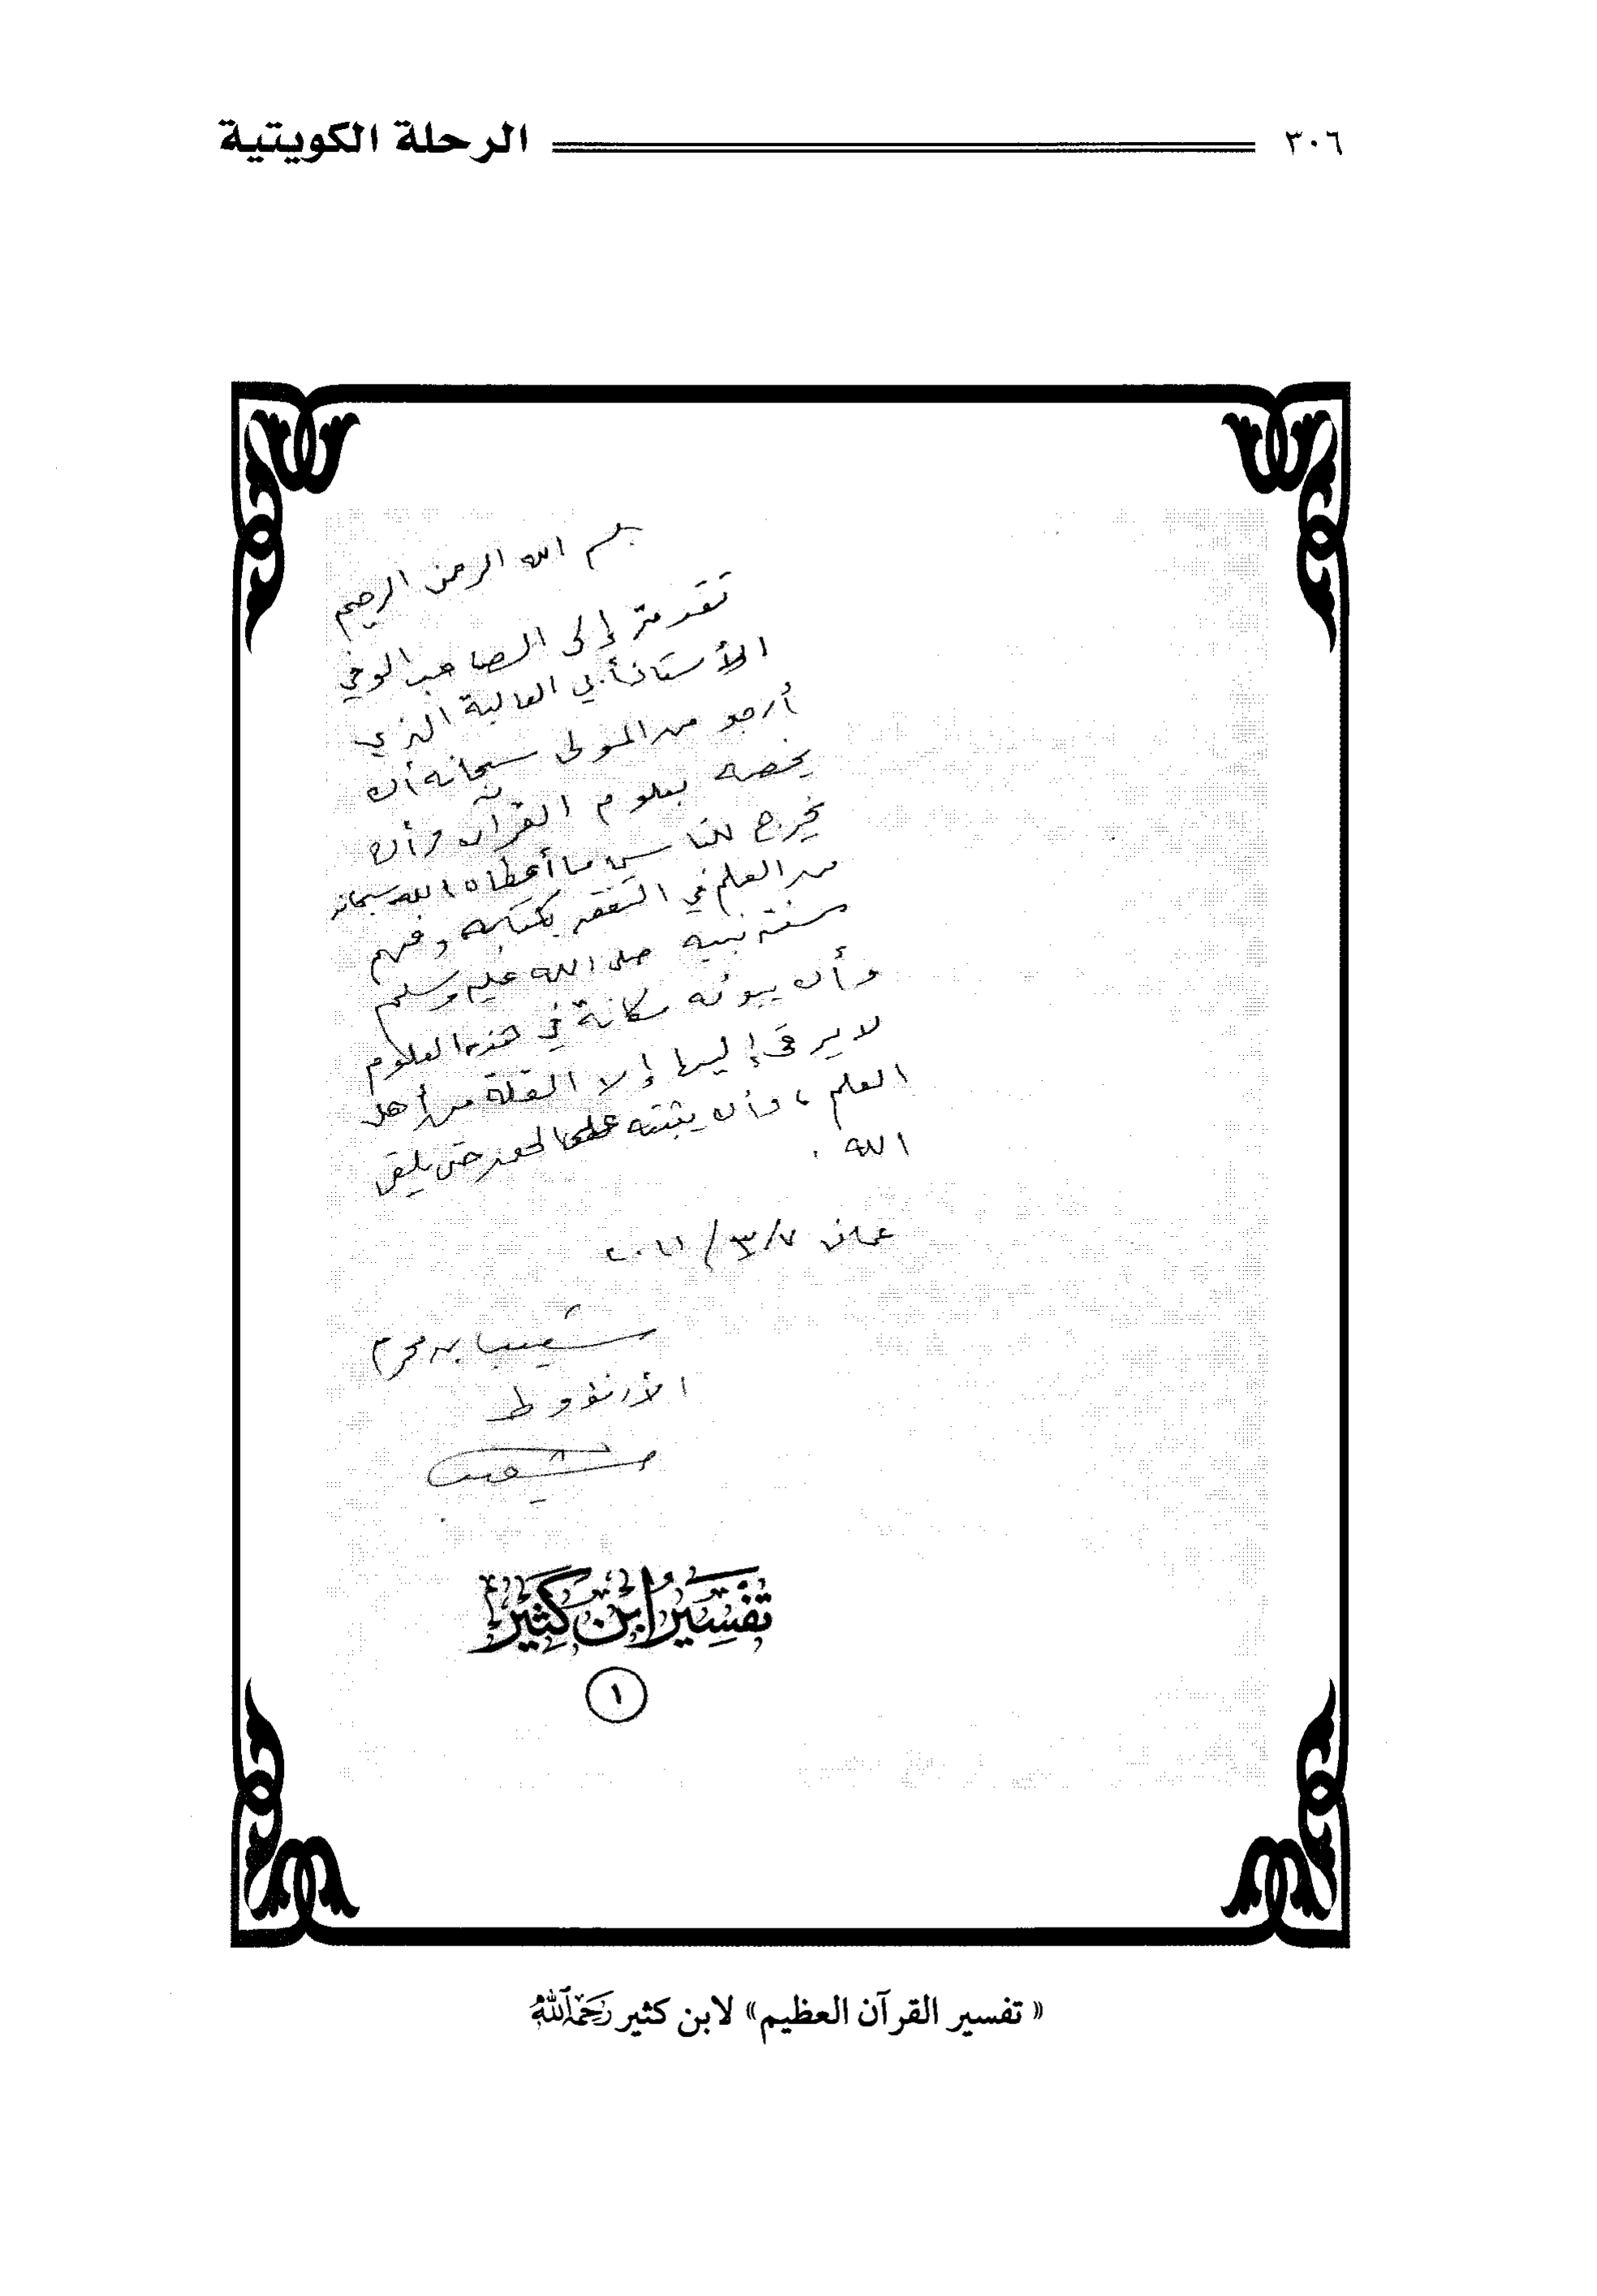 ٣٠٦ الرحلة الكويتية
بسم الله الرحمن الرحيم
تقدمة إلى الصاحب الوفي
الأستاذ أبي العالية الذي
أرجو من المولى سبحانه أن
يخصه بعلوم القرآن وأن
يخرج للناس ما أعطاه الله سبحانه
من العلم في التفقه بكتابه وفهم
سنة نبيه صلى الله عليه وسلم
وأن يبوئه مكانة في هذه العلوم
لا يرقى إليها إلا القلة من أهل
العلم، وأن يثبته على الحق حتى يلقى
الله.
عمان ٧/٣/٢٠١١
شعيب بن محرم
الأرنؤوط
شعيب
تفسير ابن كثير
١
« تفسير القرآن العظيم» لابن كثير رَحِمَهُ اللَّهُ